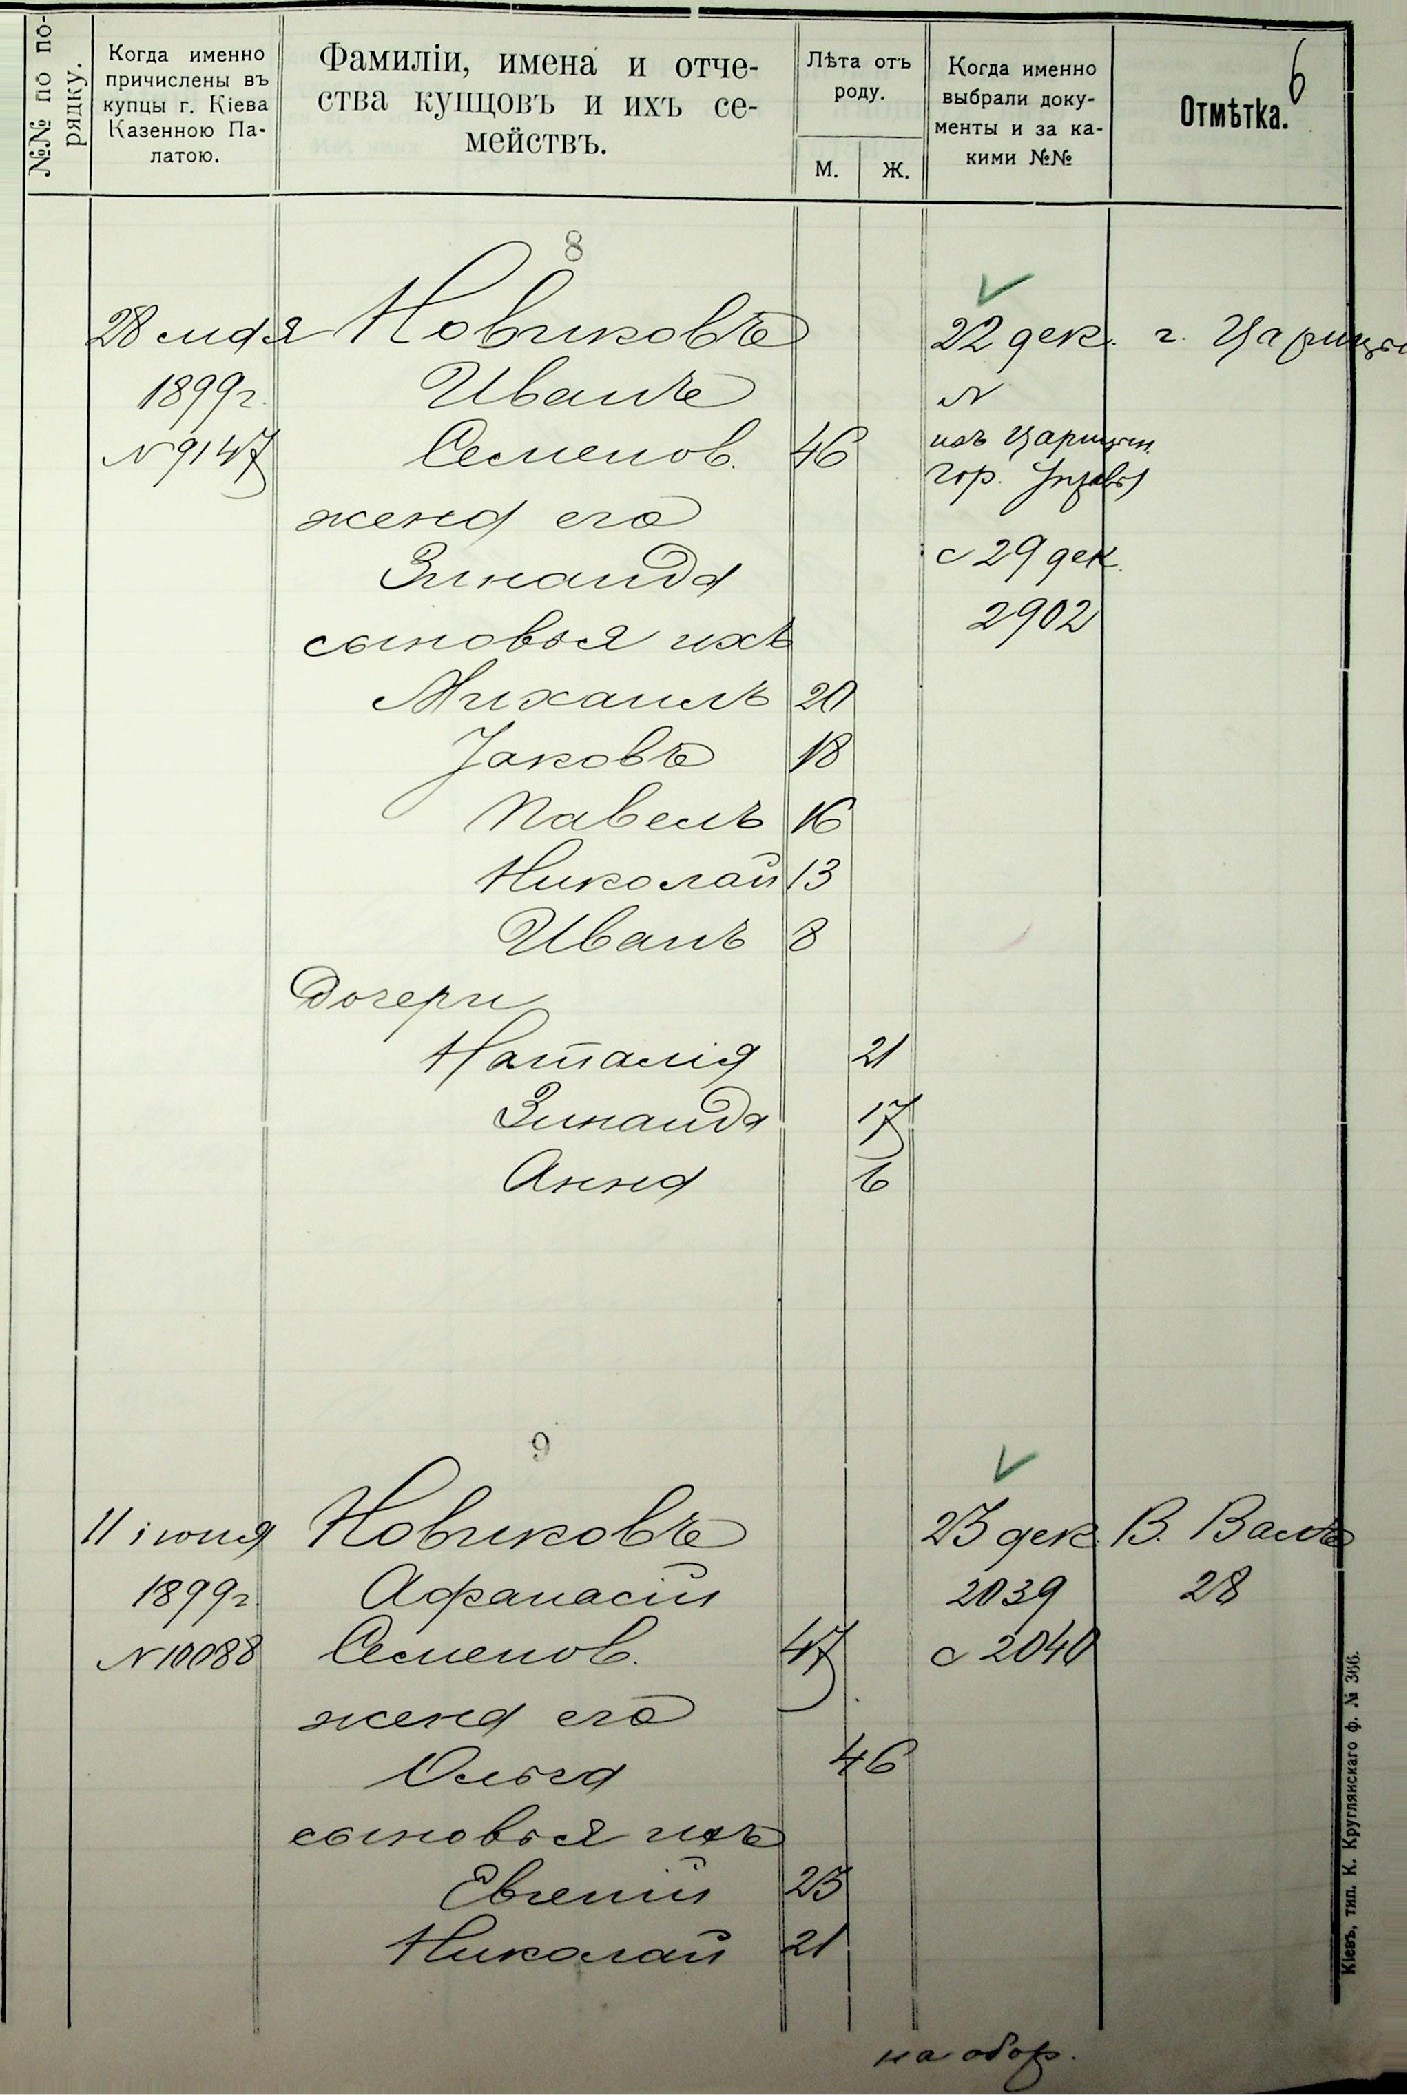 №№ по по-
рядку.
Когда именно
причислены въ
купцы г. Кіева
Казенною Па-
латою.
Фамиліи, имена и отче-
ства купцовъ и ихъ се-
мействъ.
Лѣта отъ
роду.
М.
Ж.
Когда именно
выбрали доку-
менты и за ка-
кими №№
Отмѣтка.
6
8
28 мая Новиковъ 22 дек. г. Царицын
1899 г. Иванъ N
N 9147 Семенов. 46 изъ Царицын.
гор. Управы
жена его
с 29 дек.
Зинаида
2902
сыновья ихъ
Михаилъ 20
Яковъ 18
Павелъ 16
Николай 13
Иванъ 8
Дочери
Наталія 21
Зинаида 17
Анна 6
9
11 іюня Новиковъ 23 дек. В. Валъ
1899 г. Афанасій 2039 28
N 10088 Семенов. 47 с 2040
жена его
Ольга 46
сыновья ихъ
Евгеній 23
Николай 21
на обор.
Кіевъ, тип. К. Круглянскаго ф. № 366.